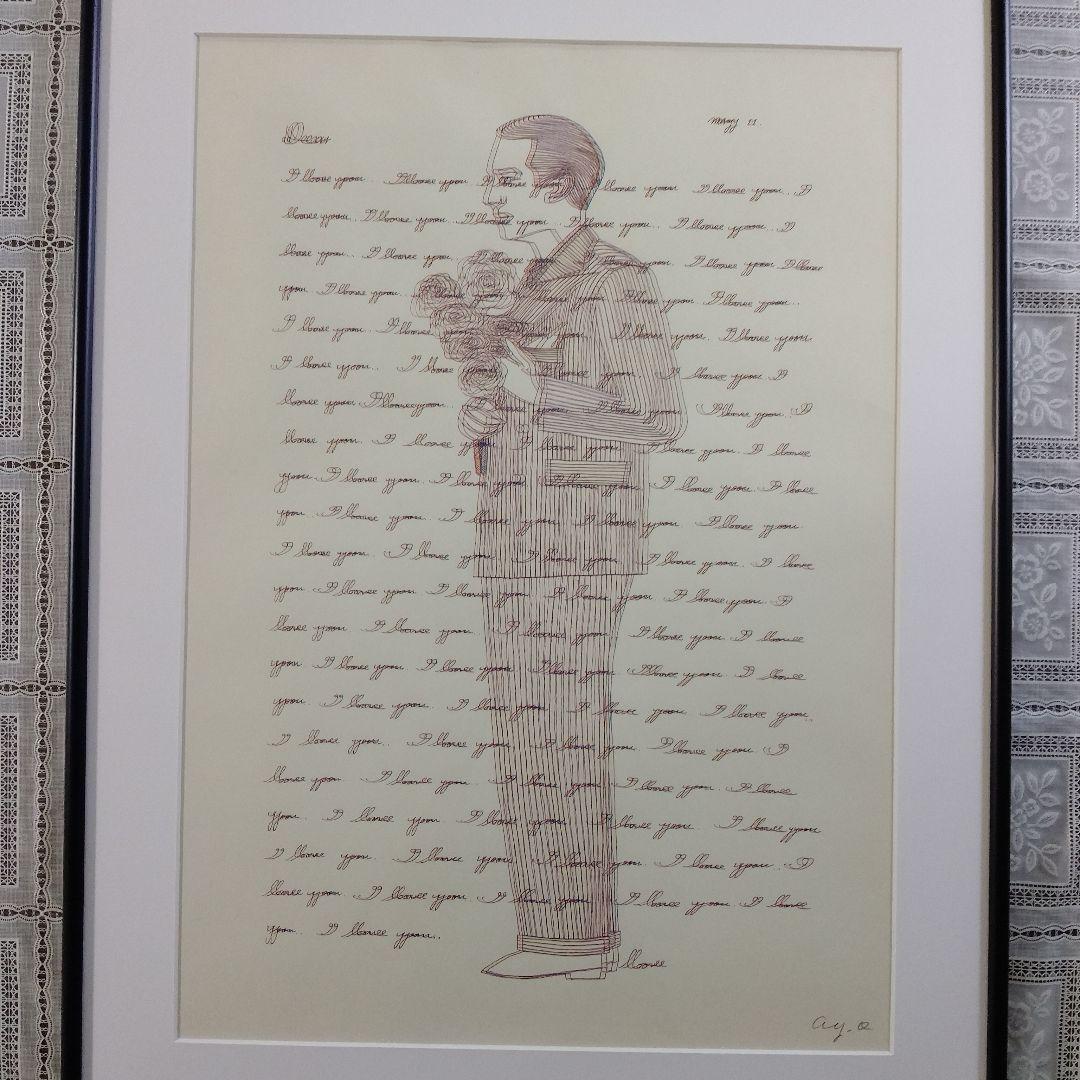 Dear
I love you. I love you. I love you. I love you. I love you. I
love you. I love you. I love you. I love you. I love you. I
love you. I love you. I love you. I love you. I love you. I love
you. I love you. I love you. I love you. I love you. I love you..
I love you. I love you. I love you. I love you. I love you.
I love you. I love you. I love you. I love you. I
love you. I love you. I love you. I love you. I love you. I
love you. I love you. I love you. I love you. I love
you. I love you. I love you. I love you. I love you. I love
you. I love you. I love you. I love you. I love you.
I love you. I love you. I love you. I love you. I love
you. I love you. I love you. I love you. I love you. I
love you. I love you. I love you. I love you. I love
you. I love you. I love you. I love you. I love you. I love
you. I love you. I love you. I love you. I love you.
I love you. I love you. I love you. I love you. I
love you. I love you. I love you. I love you. I love
you. I love you. I love you. I love you. I love you
I love you. I love you. I love you. I love you. I
love you. I love you. I love you. I love you. I love
you. I love you.
love
ay. 02